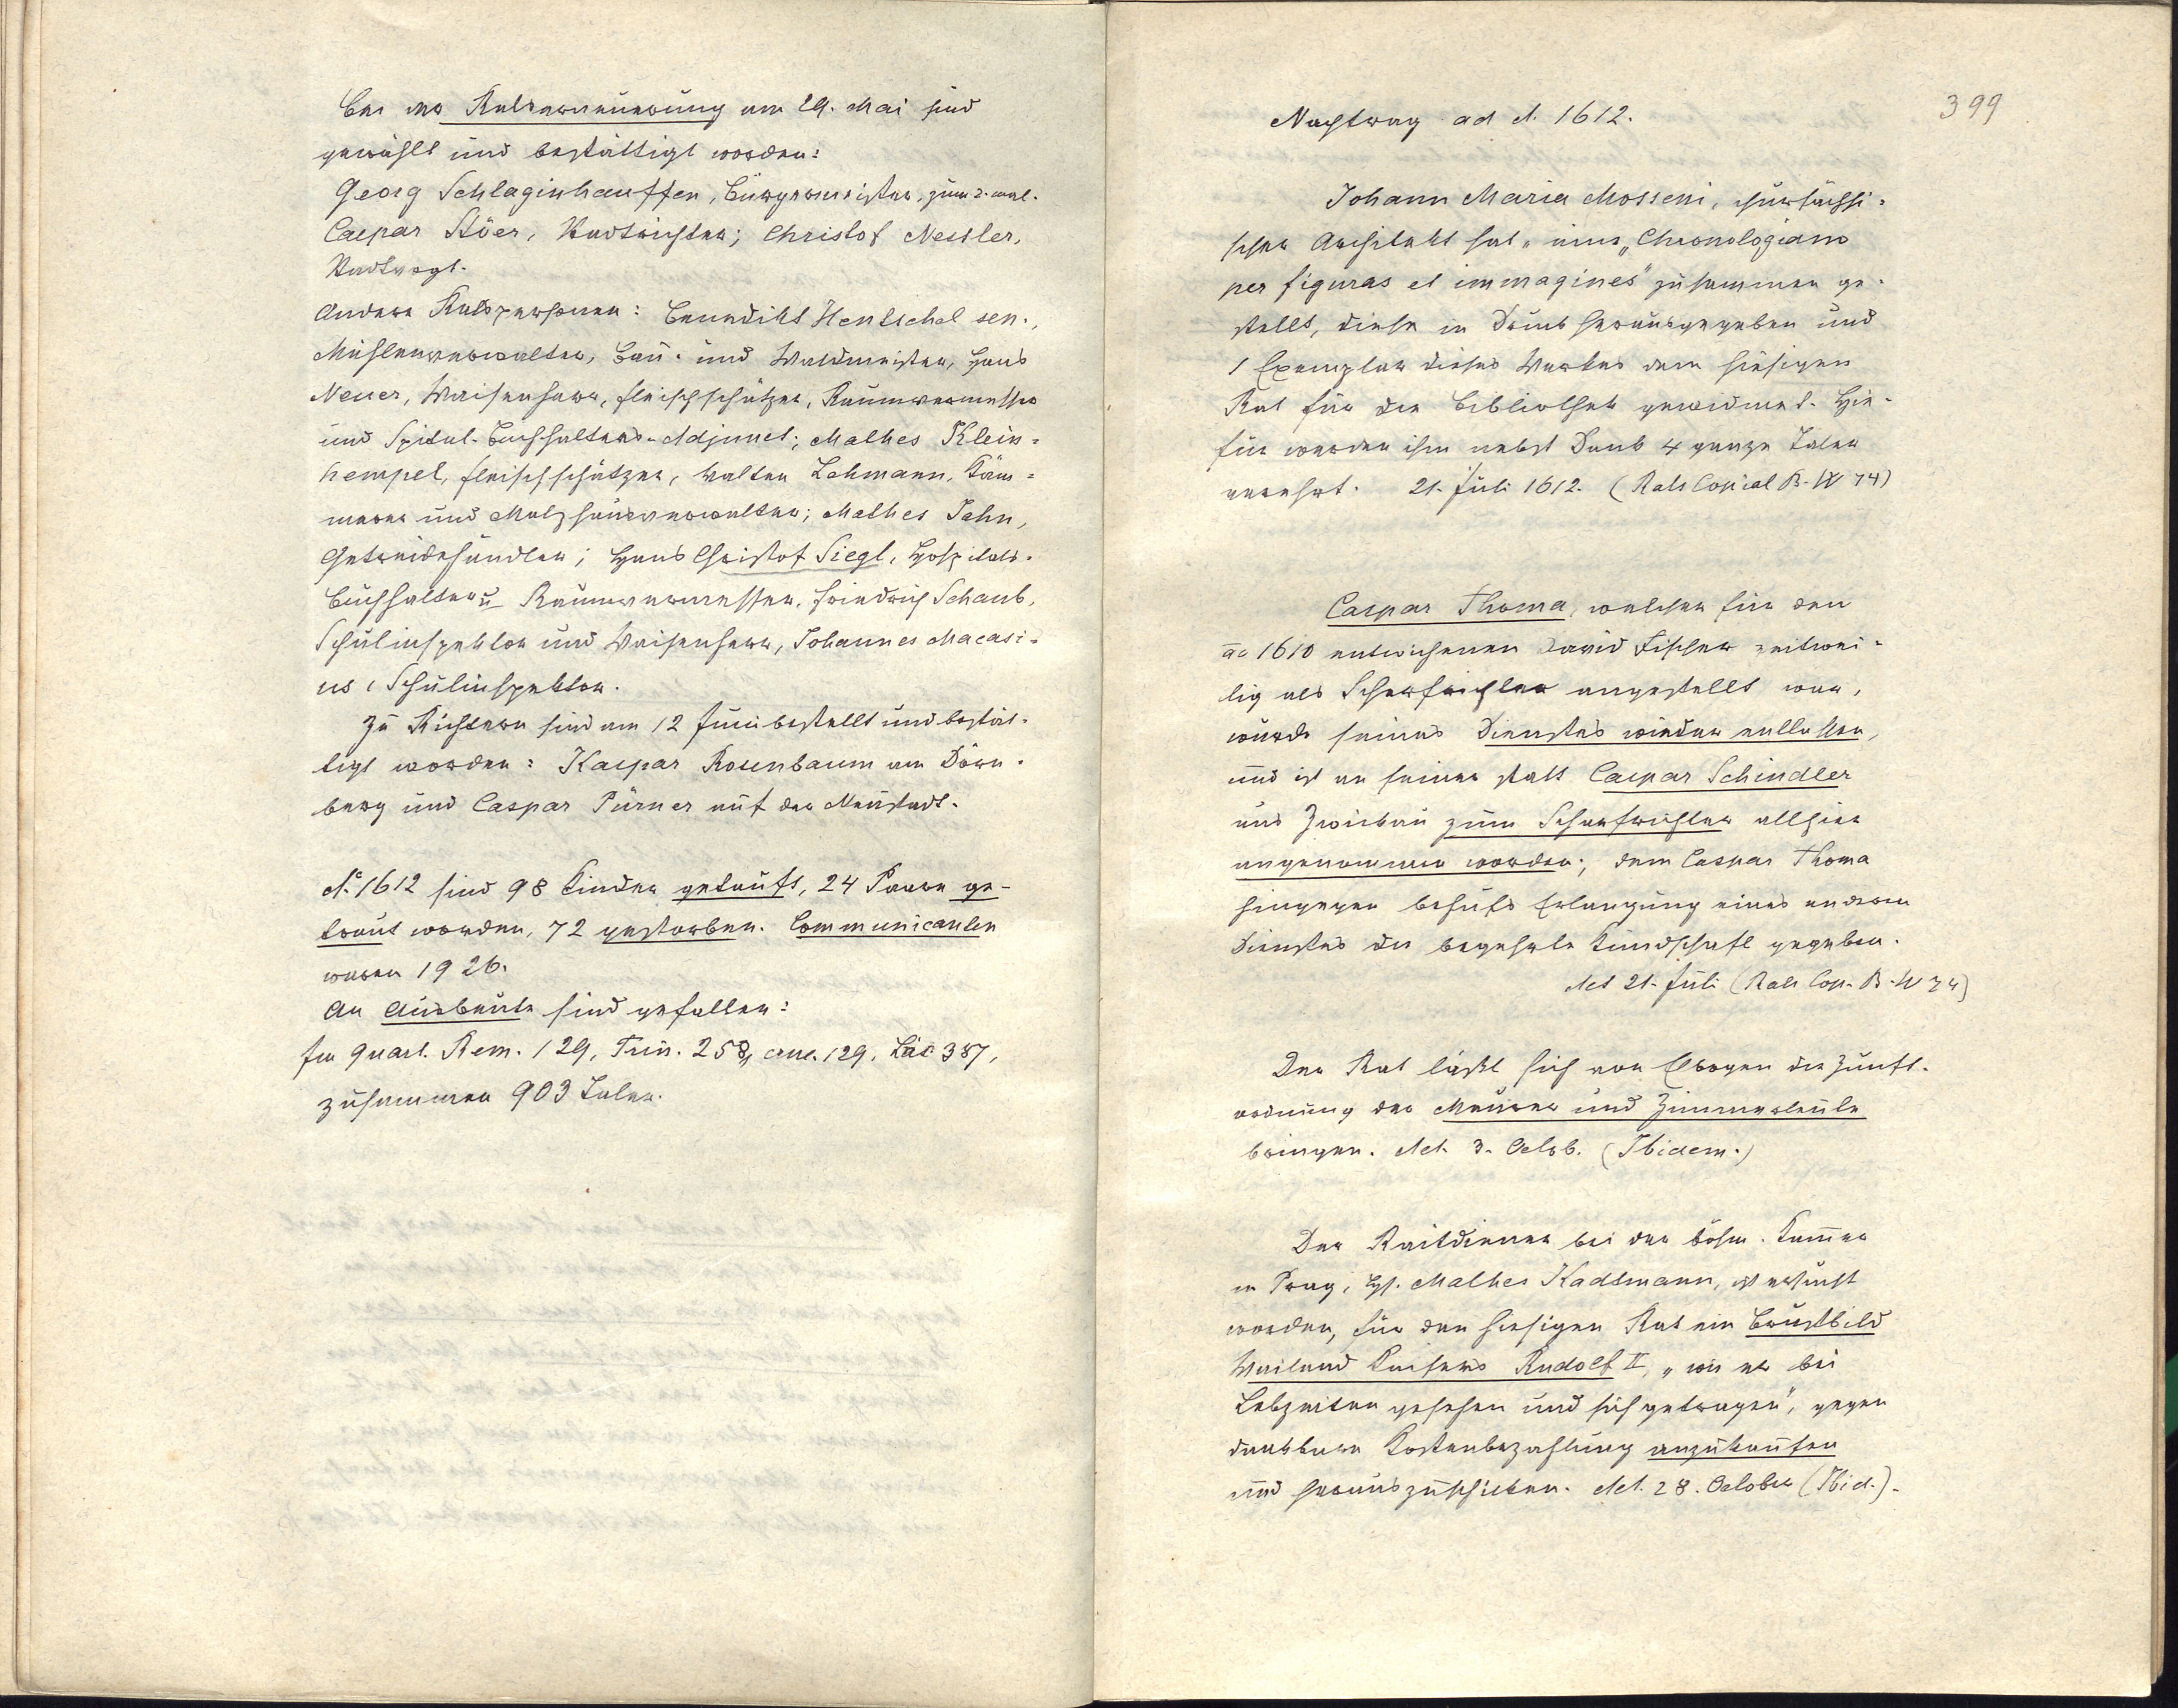 Bei der Ratserneuerung am 29. Mai sind
gewählt und bestättigt worden:
Georg Schlaginhauffen, Bürgermeister, zum 2. mal.
Caspar Stöer, Stadtrichter; Christof Nessler,
Stadtvogt.
Andere Ratspersonen: Benedikt Hentschel sen.,
Mühlenverwalter, Bau- und Waldmeister, Hans
Neuer, Waisenherr, Fleischschätzer, Raumvermesser
und Spital-Buchhalters-Adjunct; Mathes Klein-
hempel, Fleischschätzer, Walten Lehmann, Käm-
merer und Malzhausverwalter; Mathes Jahn,
Getreidehändler; Hans Christof Siegl, Hospitals-
Buchhalter u Raumvermesser, Friedrich Schaub,
Schulinspektor und Waisenherr, Johannes Macasi-
us, Schulinspektor.
Zu Richtern sind am 12 Juni bestellt und bestät-
tigt worden: Kaspar Rosenbaum am Dörn-
berg und Caspar Pürner auf der Neustadt.
Ao. 1612 sind 98 Kinder getauft, 24 Paare ge-
traut worden, 72 gestorben. Communicanten
waren 1926.
An Ausbeute sind gefallen:
Im Quart. Rem. 129, Trin. 258, cruc. 129, Luc 387,
zusammen 903 Taler.
399
Nachtrag ad A. 1612.
Johann Maria Mosseni, chursächsi-
scher Architekt hat eine „Chronologiam
per figuras et immagines" zusammen ge-
stellt, diese in Druck herausgegeben und
1 Exemplar dieses Werkes dem hiesigen
Rat für die Bibliothek gewidmet. Hie-
für werden ihm nebst Dank 4 ganze Taler
verehrt. 21. Juli 1612. (Rats Copial B. IV 74)
Caspar Thoma, welcher für den
ao 1610 entwichenen David Fischer zeitwei-
lig als Scharfrichter angestellt war,
wurde seines Dienstes wieder entlassen,
und ist an seiner statt Caspar Schindler
aus Zwickau zum Scharfrichter allhier
angenommen worden; dem Caspar Thoma
hingegen behufs Erlangung eines anderen
Dienstes die begehrte Kundschaft gegeben.
Act 21. Juli (Rats Cop. B. IV 74)
Der Rat läßt sich von Elbogen die Zunft-
ordnung der Maurer und Zimmerleute
bringen. Act. 3. Octob. (Ibidem.)
Der Raitdiener bei der böhm. Kammer
in Prag, H. Mathes Kadtmann, ist ersucht
worden, für den hiesigen Rat ein Brustbild
Weiland Kaisers Rudolf II, „wie er bei
Lebzeiten gesehen und sich getragen", gegen
dankbare Kostenbezahlung anzukaufen
und herauszuschicken. Act. 28. October (Ibid.).